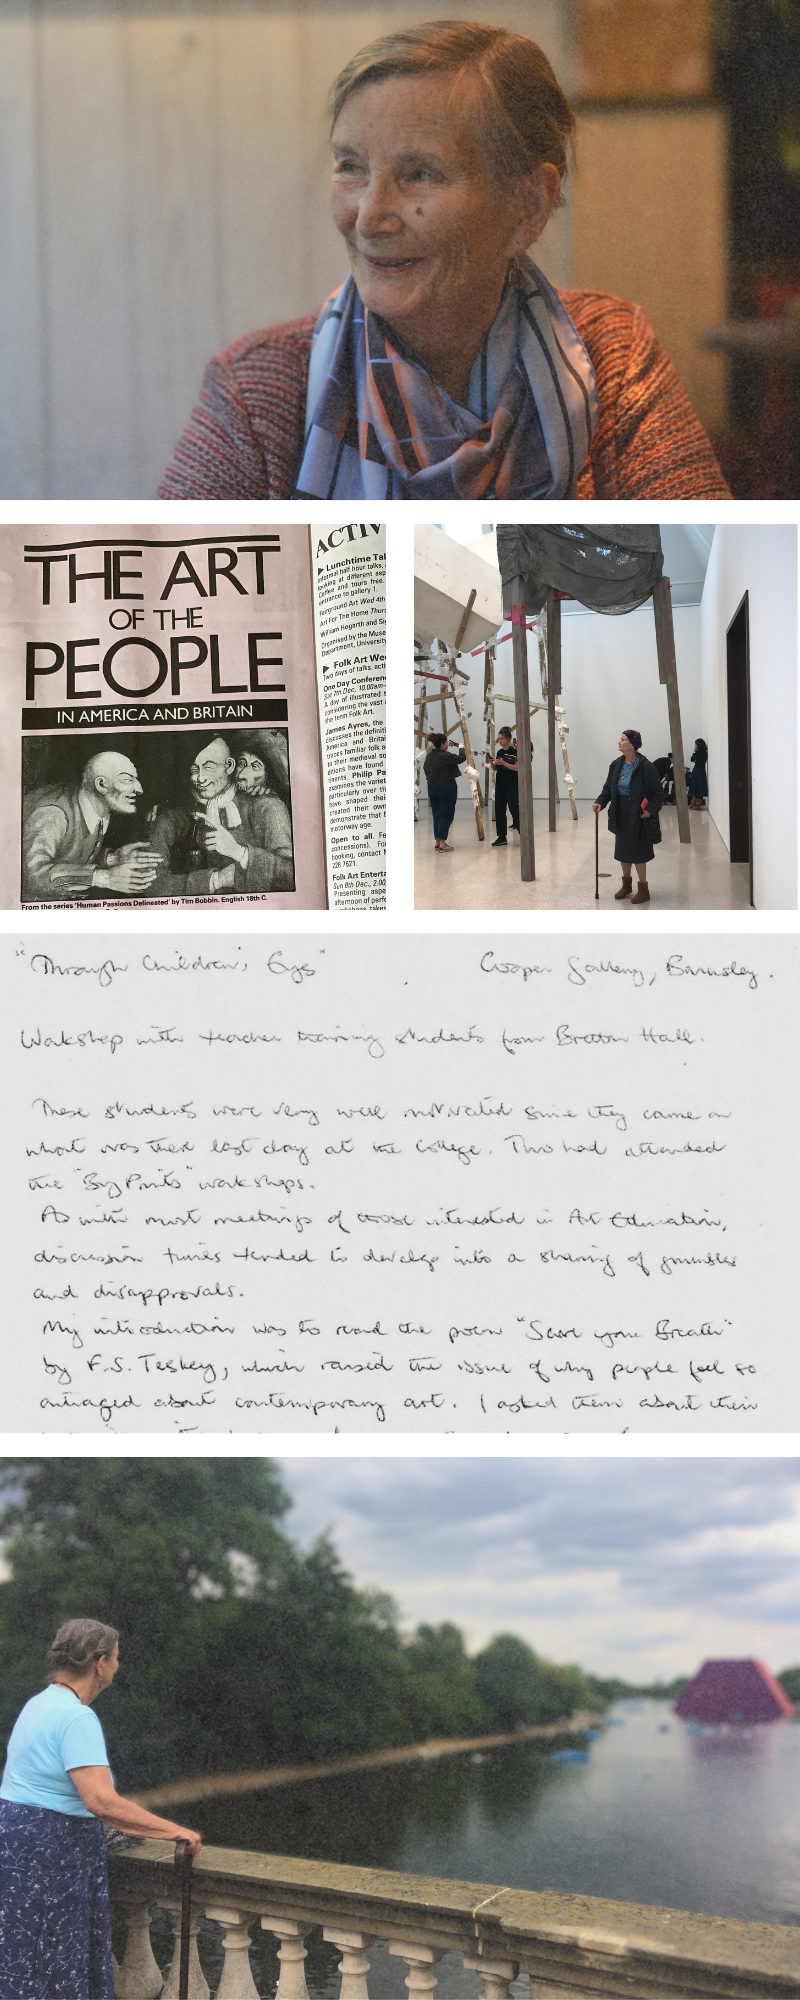 THE ART
OF THE
PEOPLE
IN AMERICA AND BRITAIN
From the series 'Human Passions Delineated' by Tim Bobbin. English 18th C.
ACTIV
▶ Lunchtime Tal
Informal half hour talks,
looking at different asp
Coffee and tours free.
entrance to gallery 1.
Fairground Art Wed 4th
Art For The Home Thurs
William Hogarth and Sig
Organised by the Muse
Department, University
▶ Folk Art Wee
Two days of talks, acti
One Day Conferenc
Sat 7th Dec, 10.00am-
A day of illustrated t
considering the vast a
the term Folk Art.
James Ayres, the
discusses the definiti
America and Britai
traces familiar folk a
to their medieval so
ditions have found
tinents. Philip Pa
examines the variet
particularly over th
have shaped thei
created their own
demonstrate that f
motorway age.
Open to all. Fe
concessions). For
booking, contact
228 7621.
Folk Art Enterta
Sun 8th Dec., 2.00
Presenting aspe
afternoon of perfo
workshops takes
"Through Children's Eyes" Cooper Gallery, Barnsley.
Workshop with teacher training students from Bretton Hall.
These students were very well motivated since they came on
what was their last day at the College. Two had attended
the "Big Prints" workshops.
As with most meetings of those interested in Art Education,
discussion times tended to develop into a sharing of grumbles
and disapprovals.
My introduction was to read the poem "Save your Breath"
by F.S. Teskey, which raised the issue of why people feel so
outraged about contemporary art. I asked them about their